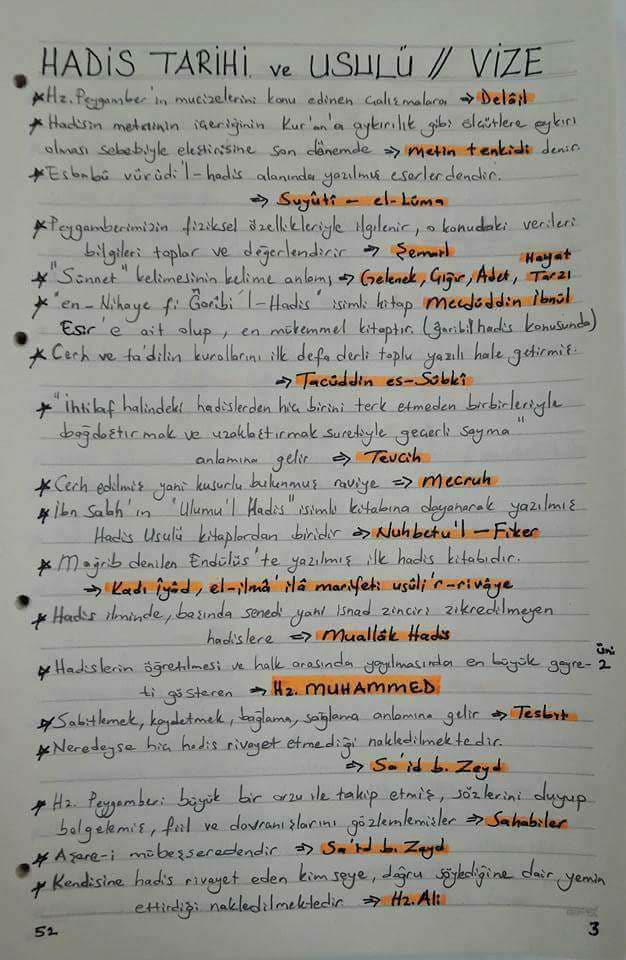 HADİS TARİHİ ve USULÜ // VİZE
★ Hz. Peygamber'in mucizelerini konu edinen çalışmalara ⇒ Delâil
★ Hadisin metninin içeriğinin Kur'an'a aykırılık gibi ölçütlere aykırı
olması sebebiyle eleştirisine son dönemde ⇒ metin tenkidi denir.
★ Esbabü vürûdi'l-hadis alanında yazılmış eserlerdendir.
⇒ Suyûti – el-Lüma
★ Peygamberimizin fiziksel özellikleriyle ilgilenir, o konudaki verileri
bilgileri toplar ve değerlendirir ⇒ Şemail
★ "Sünnet" kelimesinin kelime anlamı ⇒ Gelenek, Çığır, Adet, Hayat Tarzı
★ "en-Nihaye fi Garibi'l-Hadis" isimli kitap Mecdüddin İbnül
Esir'e ait olup, en mükemmel kitaptır. (garibü'l hadis konusunda)
★ Cerh ve ta'dilin kurallarını ilk defa derli toplu yazılı hale getirmiş.
⇒ Tacüddin es-Sübkî
★ "İhtilaf halindeki hadislerden hiç birini terk etmeden birbirleriyle
bağdaştırmak ve uzaklaştırmak suretiyle geçerli sayma"
anlamına gelir ⇒ Tevcih
★ Cerh edilmiş yani kusurlu bulunmuş raviye ⇒ Mecruh
★ İbn Salah'ın "Ulumu'l Hadis" isimli kitabına dayanarak yazılmış
Hadis Usulü kitaplardan biridir ⇒ Nuhbetu'l – Fiker
★ Mağrib denilen Endülüs'te yazılmış ilk hadis kitabıdır.
⇒ Kadı İyâd, el-ilmâ' ilâ marifeti usûli'r-rivâye
★ Hadis ilminde, başında senedi yani isnad zinciri zikredilmeyen
hadislere ⇒ Muallâk Hadis
Üni 2
★ Hadislerin öğretilmesi ve halk arasında yayılmasında en büyük gayre-
ti gösteren ⇒ Hz. MUHAMMED
★ Sabitlemek, kaydetmek, bağlama, sağlama anlamına gelir ⇒ Tesbit
★ Neredeyse hiç hadis rivayet etmediği nakledilmektedir.
⇒ Sa'id b. Zeyd
★ Hz. Peygamberi büyük bir arzu ile takip etmiş, sözlerini duyup
belgelemiş, fiil ve davranışlarını gözlemlemişler ⇒ Sahabiler
★ Aşere-i mübeşşeredendir ⇒ Sa'id b. Zeyd
★ Kendisine hadis rivayet eden kimseye, doğru söylediğine dair yemin
ettirdiği nakledilmektedir ⇒ Hz. Ali
52
3